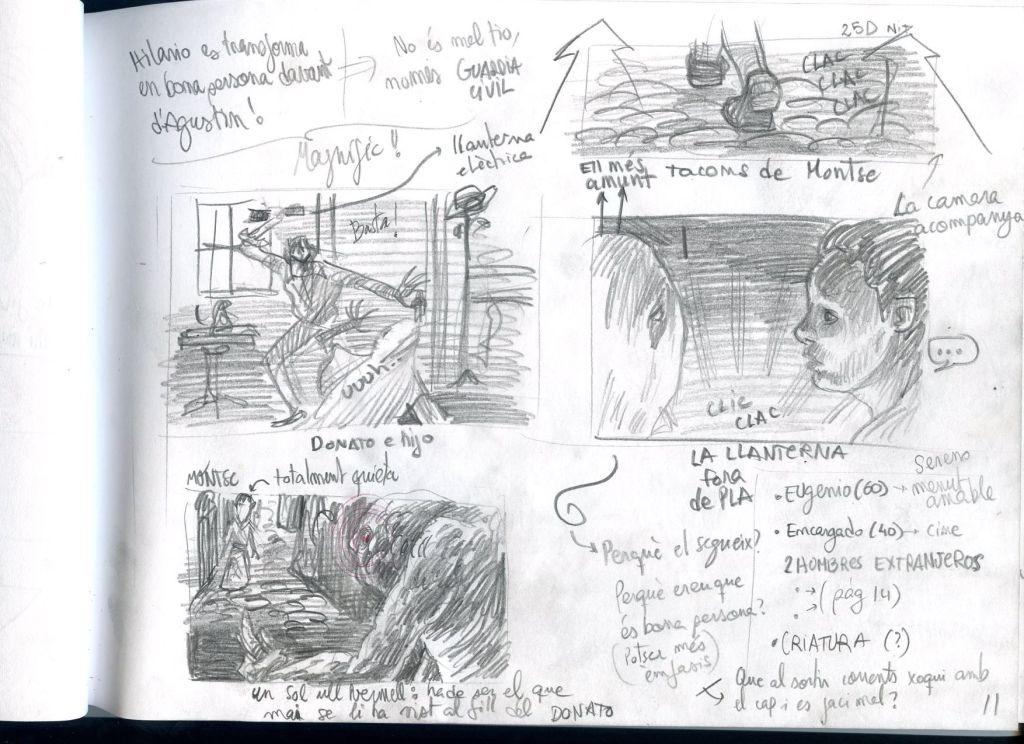 Hilario es transforma
en bona persona davant
d'Agustín!
No és mal tio,
només GUARDIA
CIVIL
Magnífic!!
llanterna
elèctrica
Basta!
ouoh...
DONATO e hijo
MONTSE
totalment quieta
un sol ull vermell: ha de ser el que
mai se li ha vist al fill del DONATO
25D Nit
CLAC
CLAC
CLAC
En més
amunt
tacons de Montse
La camera
acompanya
...
CLIC
CLAC
LA LLANTERNA
fora
de PLA
Perquè el segueix?
Perquè creu que
és bona persona?
(Potser més
èmfasis)
• EUGENIO (60) → Sereno
menut
amable
• Encargado (40) → cine
2 HOMBRES EXTRANJEROS
(pág 14)
• CRIATURA (?)
Que al sortir corrents xoqui amb
el cap i es faci mal?
11